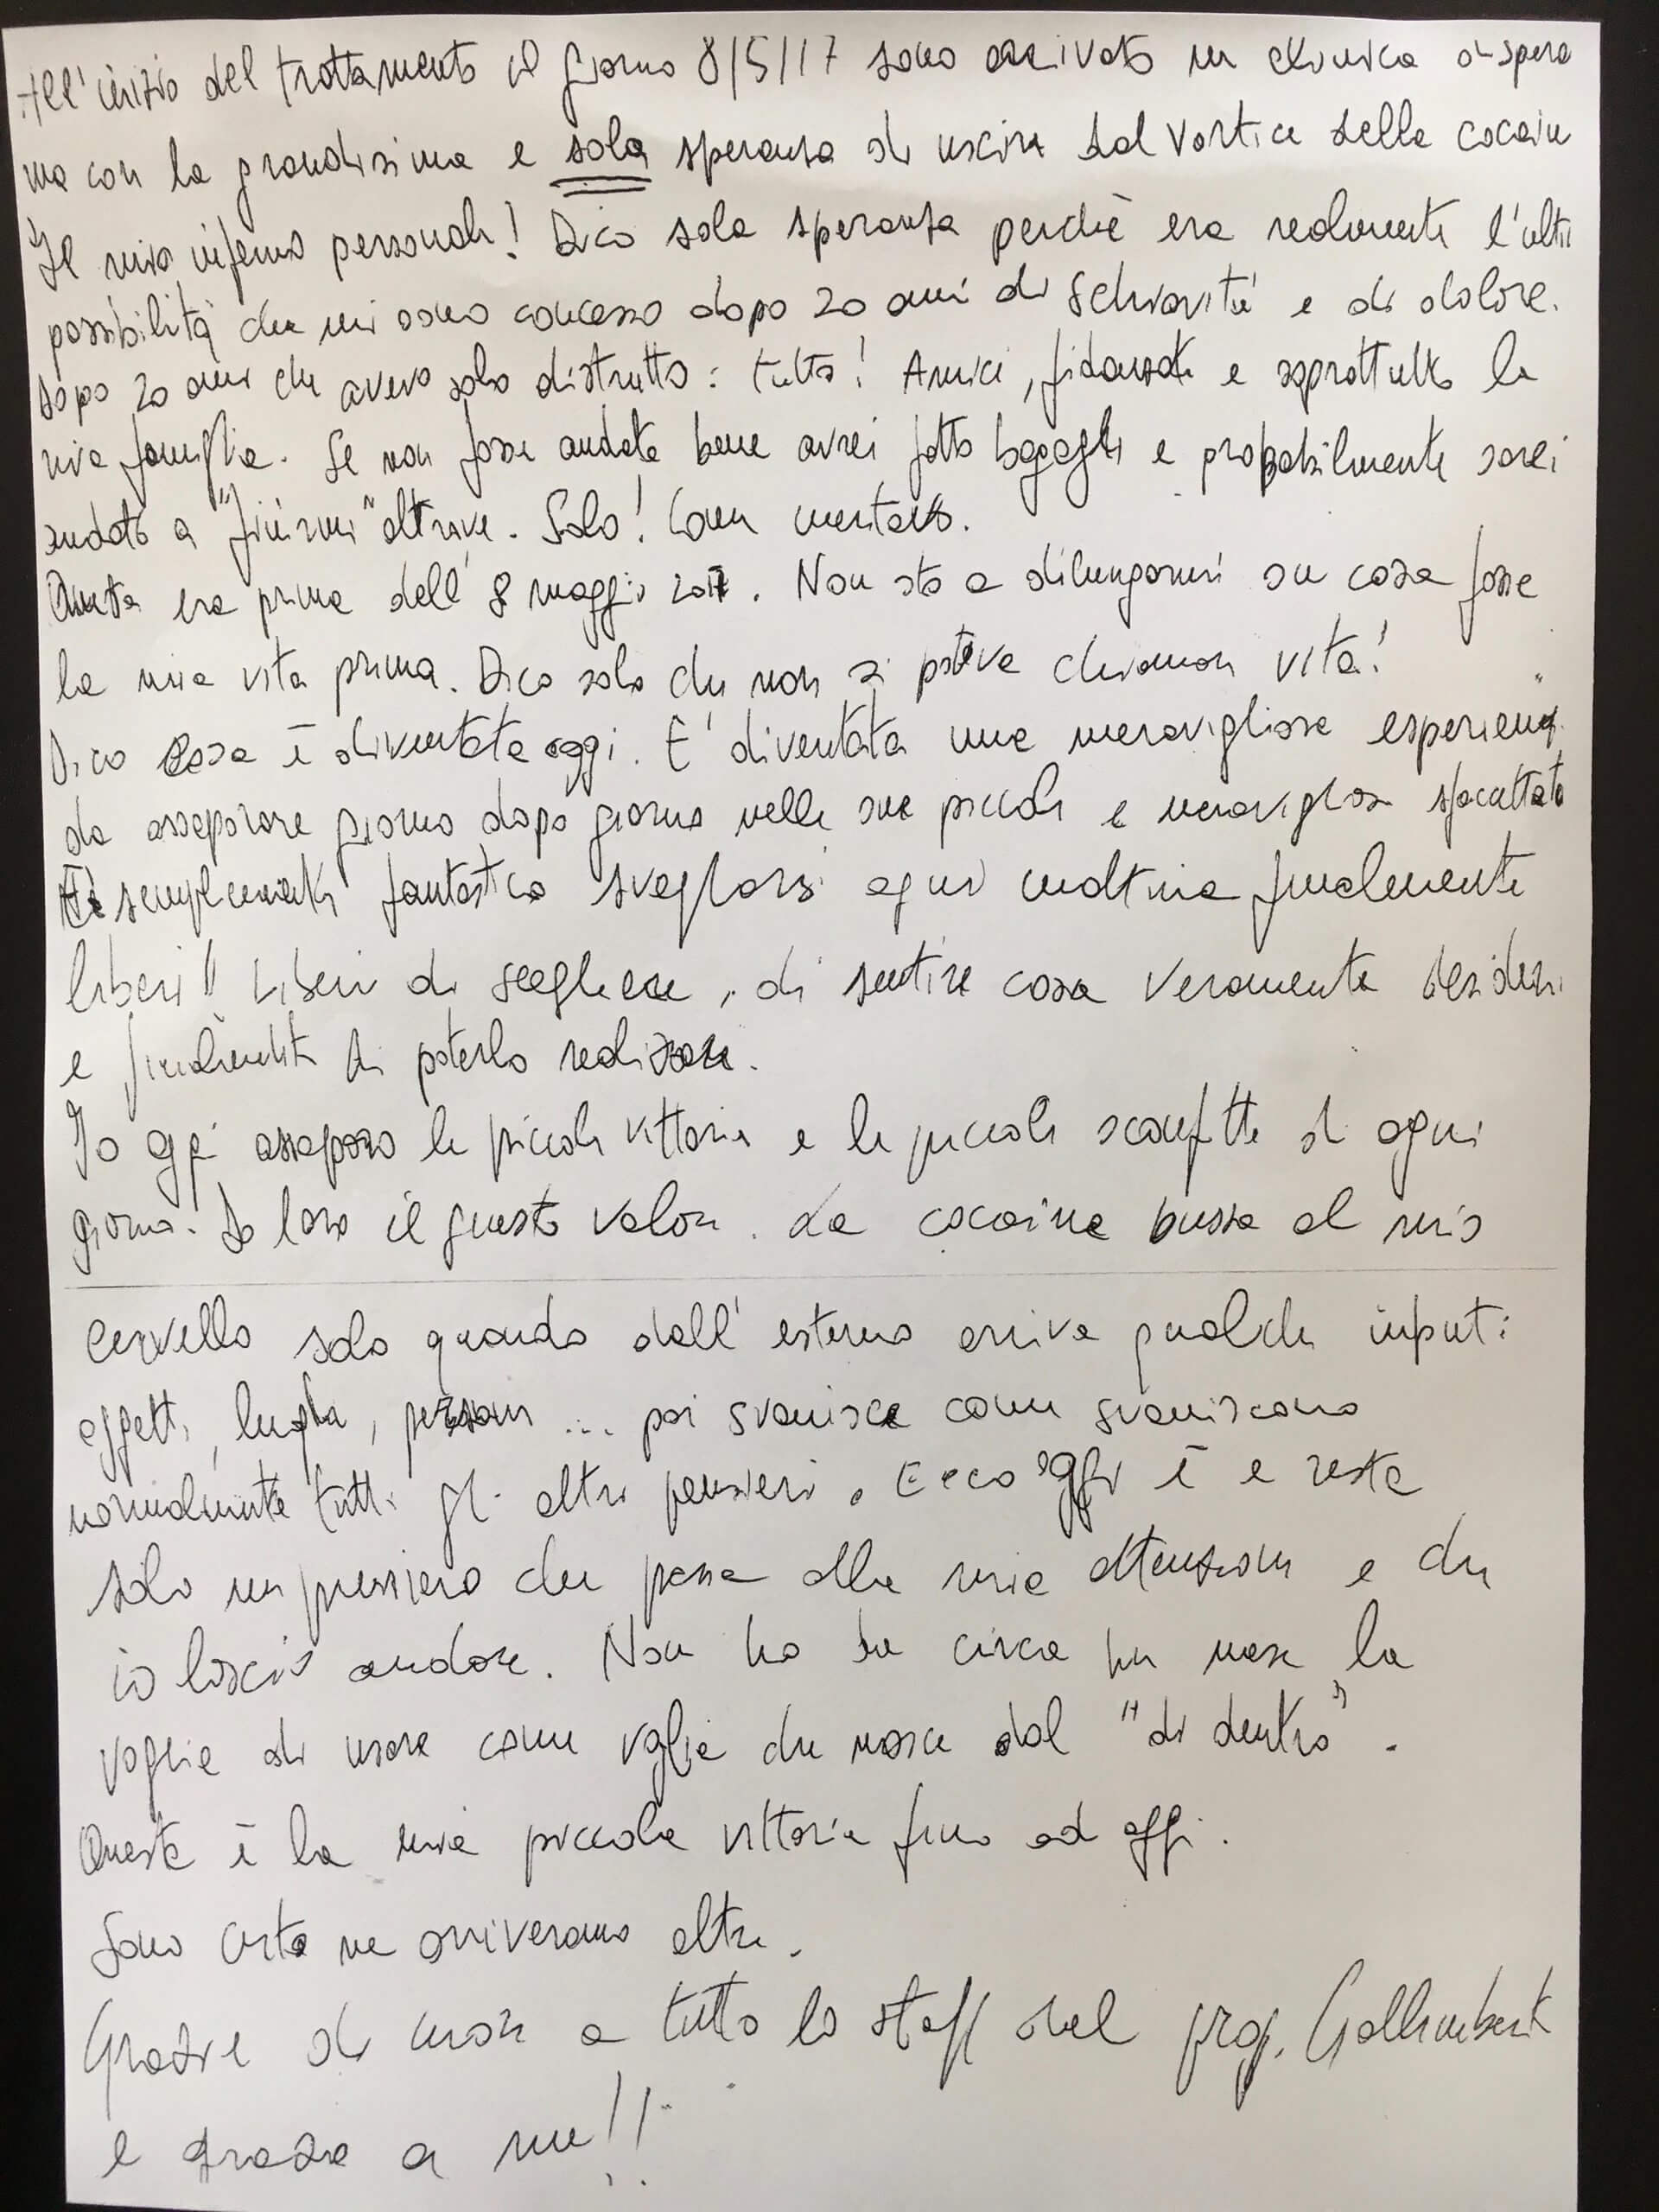 All'inizio del trattamento il giorno 8/5/17 sono arrivato in clinica dispera
ma con la grandissima e sola speranza di uscire dal vortice della cocain
Il mio inferno personale! Dico sola speranza perchè era realmente l'ulti
possibilità che mi sono concesso dopo 20 anni di schiavitù e di dolore.
dopo 20 anni che avevo solo distrutto: tutto! Amici, fidanzate e soprattutto la
mia famiglia. Se non fosse andata bene avrei fatto bagagli e probabilmente sarei
andato a "finirmi" altrove. Solo! Come meritavo.
Questa era prima dell'8 maggio 2017. Non sto a dilungarmi su cosa fosse
la mia vita prima. Dico solo che non si poteva chiamare vita!
Dico cosa è diventata oggi. E' diventata una meravigliosa esperienz
da assaporare giorno dopo giorno nelle sue piccole e meravigliose sfaccettat
È semplicemente fantastico svegliarsi ogni mattina finalmente
liberi!! Liberi di scegliere, di sentire cosa veramente desideri
e finalmente di poterlo realizzare.
Io oggi assaporo le piccole vittorie e le piccole sconfitte di ogni
giorno. Do loro il giusto valore. La cocaina bussa al mio
cervello solo quando dall'esterno arriva qualche input:
oggetti, luoghi, persone ... poi svanisce come svaniscono
normalmente tutti gli altri pensieri. Ecco oggi è e resta
solo un pensiero che passa alla mia attenzione e che
io lascio andare. Non ho da circa un mese la
voglia di usare come voglia che nasce dal "di dentro".
Questa è la mia piccola vittoria fino ad oggi.
Sono certo ne arriveranno altre.
Grazie di cuore a tutto lo staff del prof. Gallimberti
e grazie a me!!